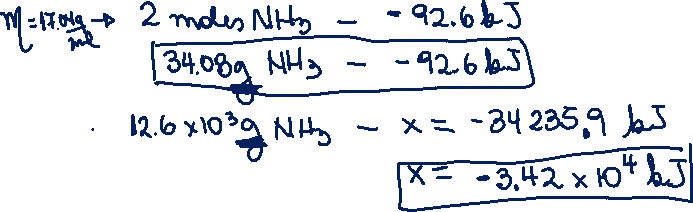 M = 17.04g/mol → 2 moles NH3 – -92.6 kJ
34.08g NH3 – -92.6 kJ
12.6 x 10³g NH3 – x = -34235,9 kJ
x = -3.42 x 10⁴ kJ